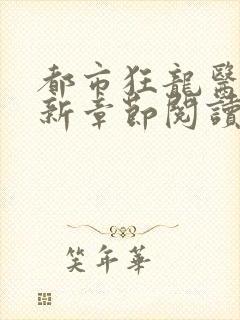 都市狂龍醫
新章節閱讀
笑年華